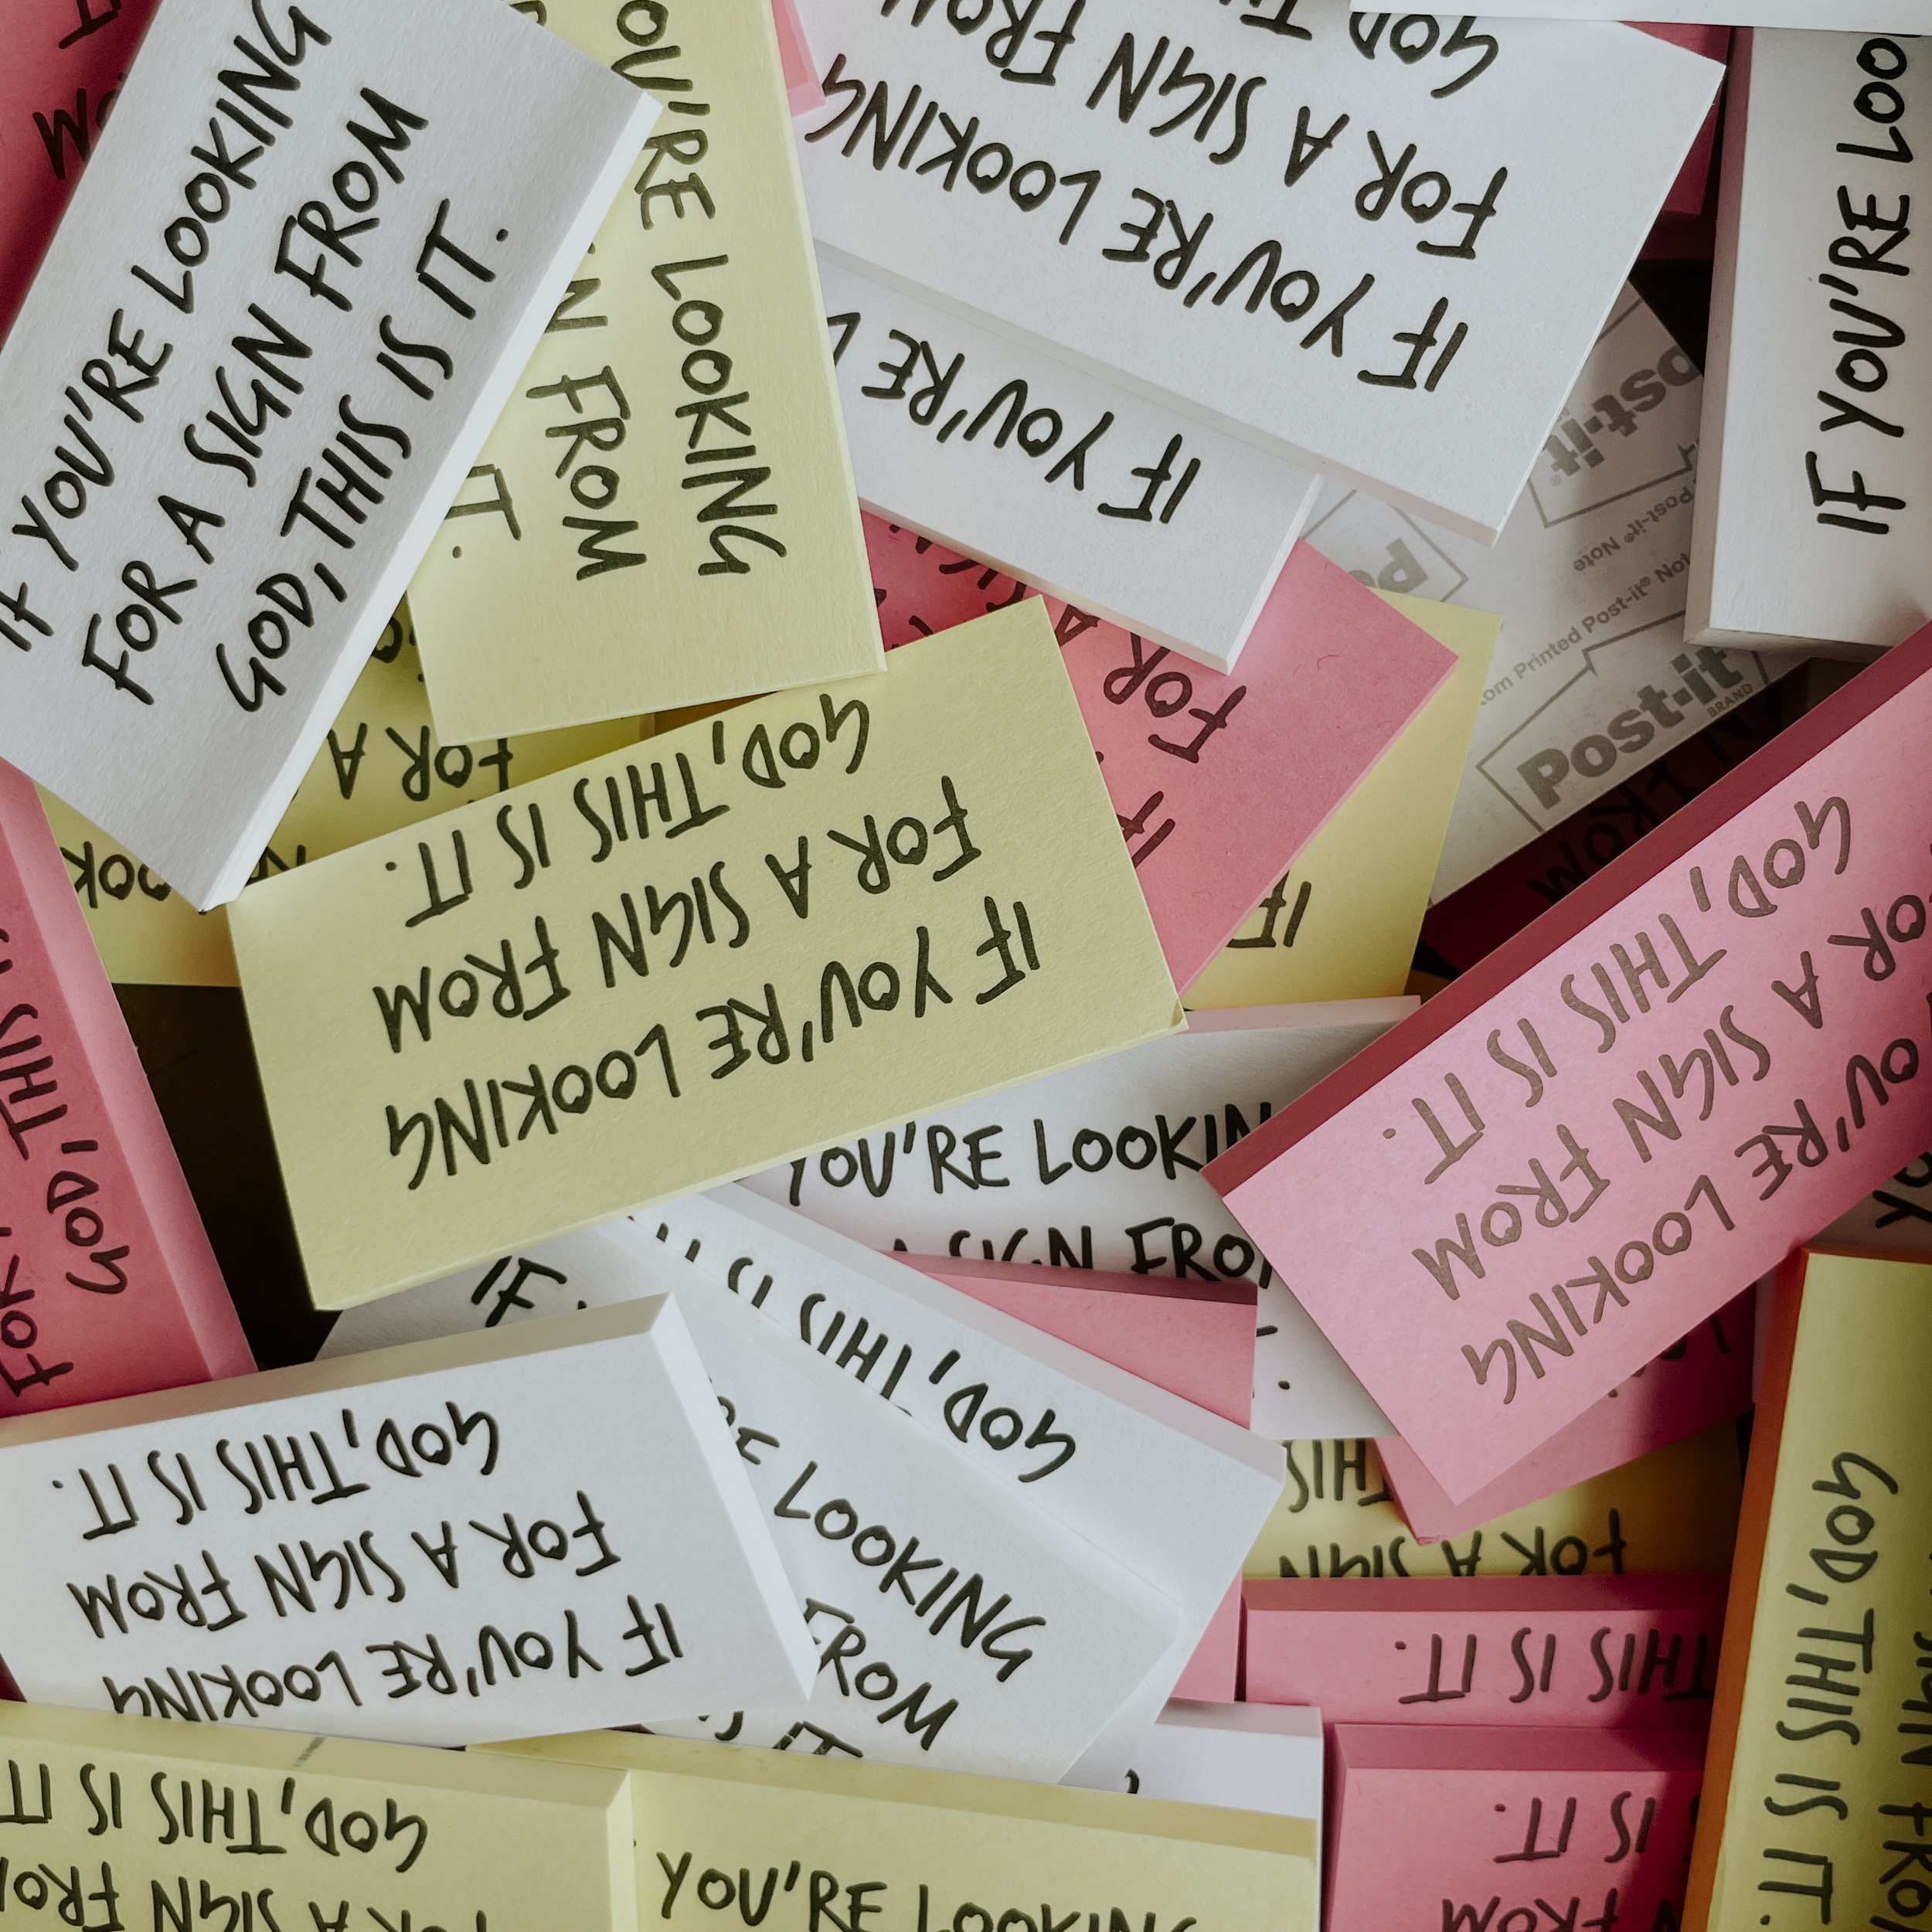 IF YOU'RE LOOKING
FOR A SIGN FROM
GOD, THIS IS IT.
OU'RE LOOKING
FROM
IT.
IF YOU'RE LOOKING
FOR A SIGN FROM
GOD
IF YOU'RE
IF YOU'RE LOO
Post-it
Post-it® Note
Printed Post-it® Not
Post-it
BRAND
FOR A
FOR
IF
IF
IF YOU'RE LOOKING
FOR A SIGN FROM
GOD, THIS IS IT.
OU'RE LOOKING
OR A SIGN FROM
GOD, THIS IS IT.
FOR
GOD, THIS
YOU'RE LOOKIN
A SIGN FRO
IF
GOD, THIS IS
LOOKING
FROM
IT
IF YOU'RE LOOKING
FOR A SIGN FROM
GOD, THIS IS IT.
FOR A SIGN
THIS
THIS IS IT.
FROM
IS IT.
GOD, THIS IS IT.
SIGN FROM
A SIGN FROM
GOD, THIS IS IT
YOU'RE LOOKING